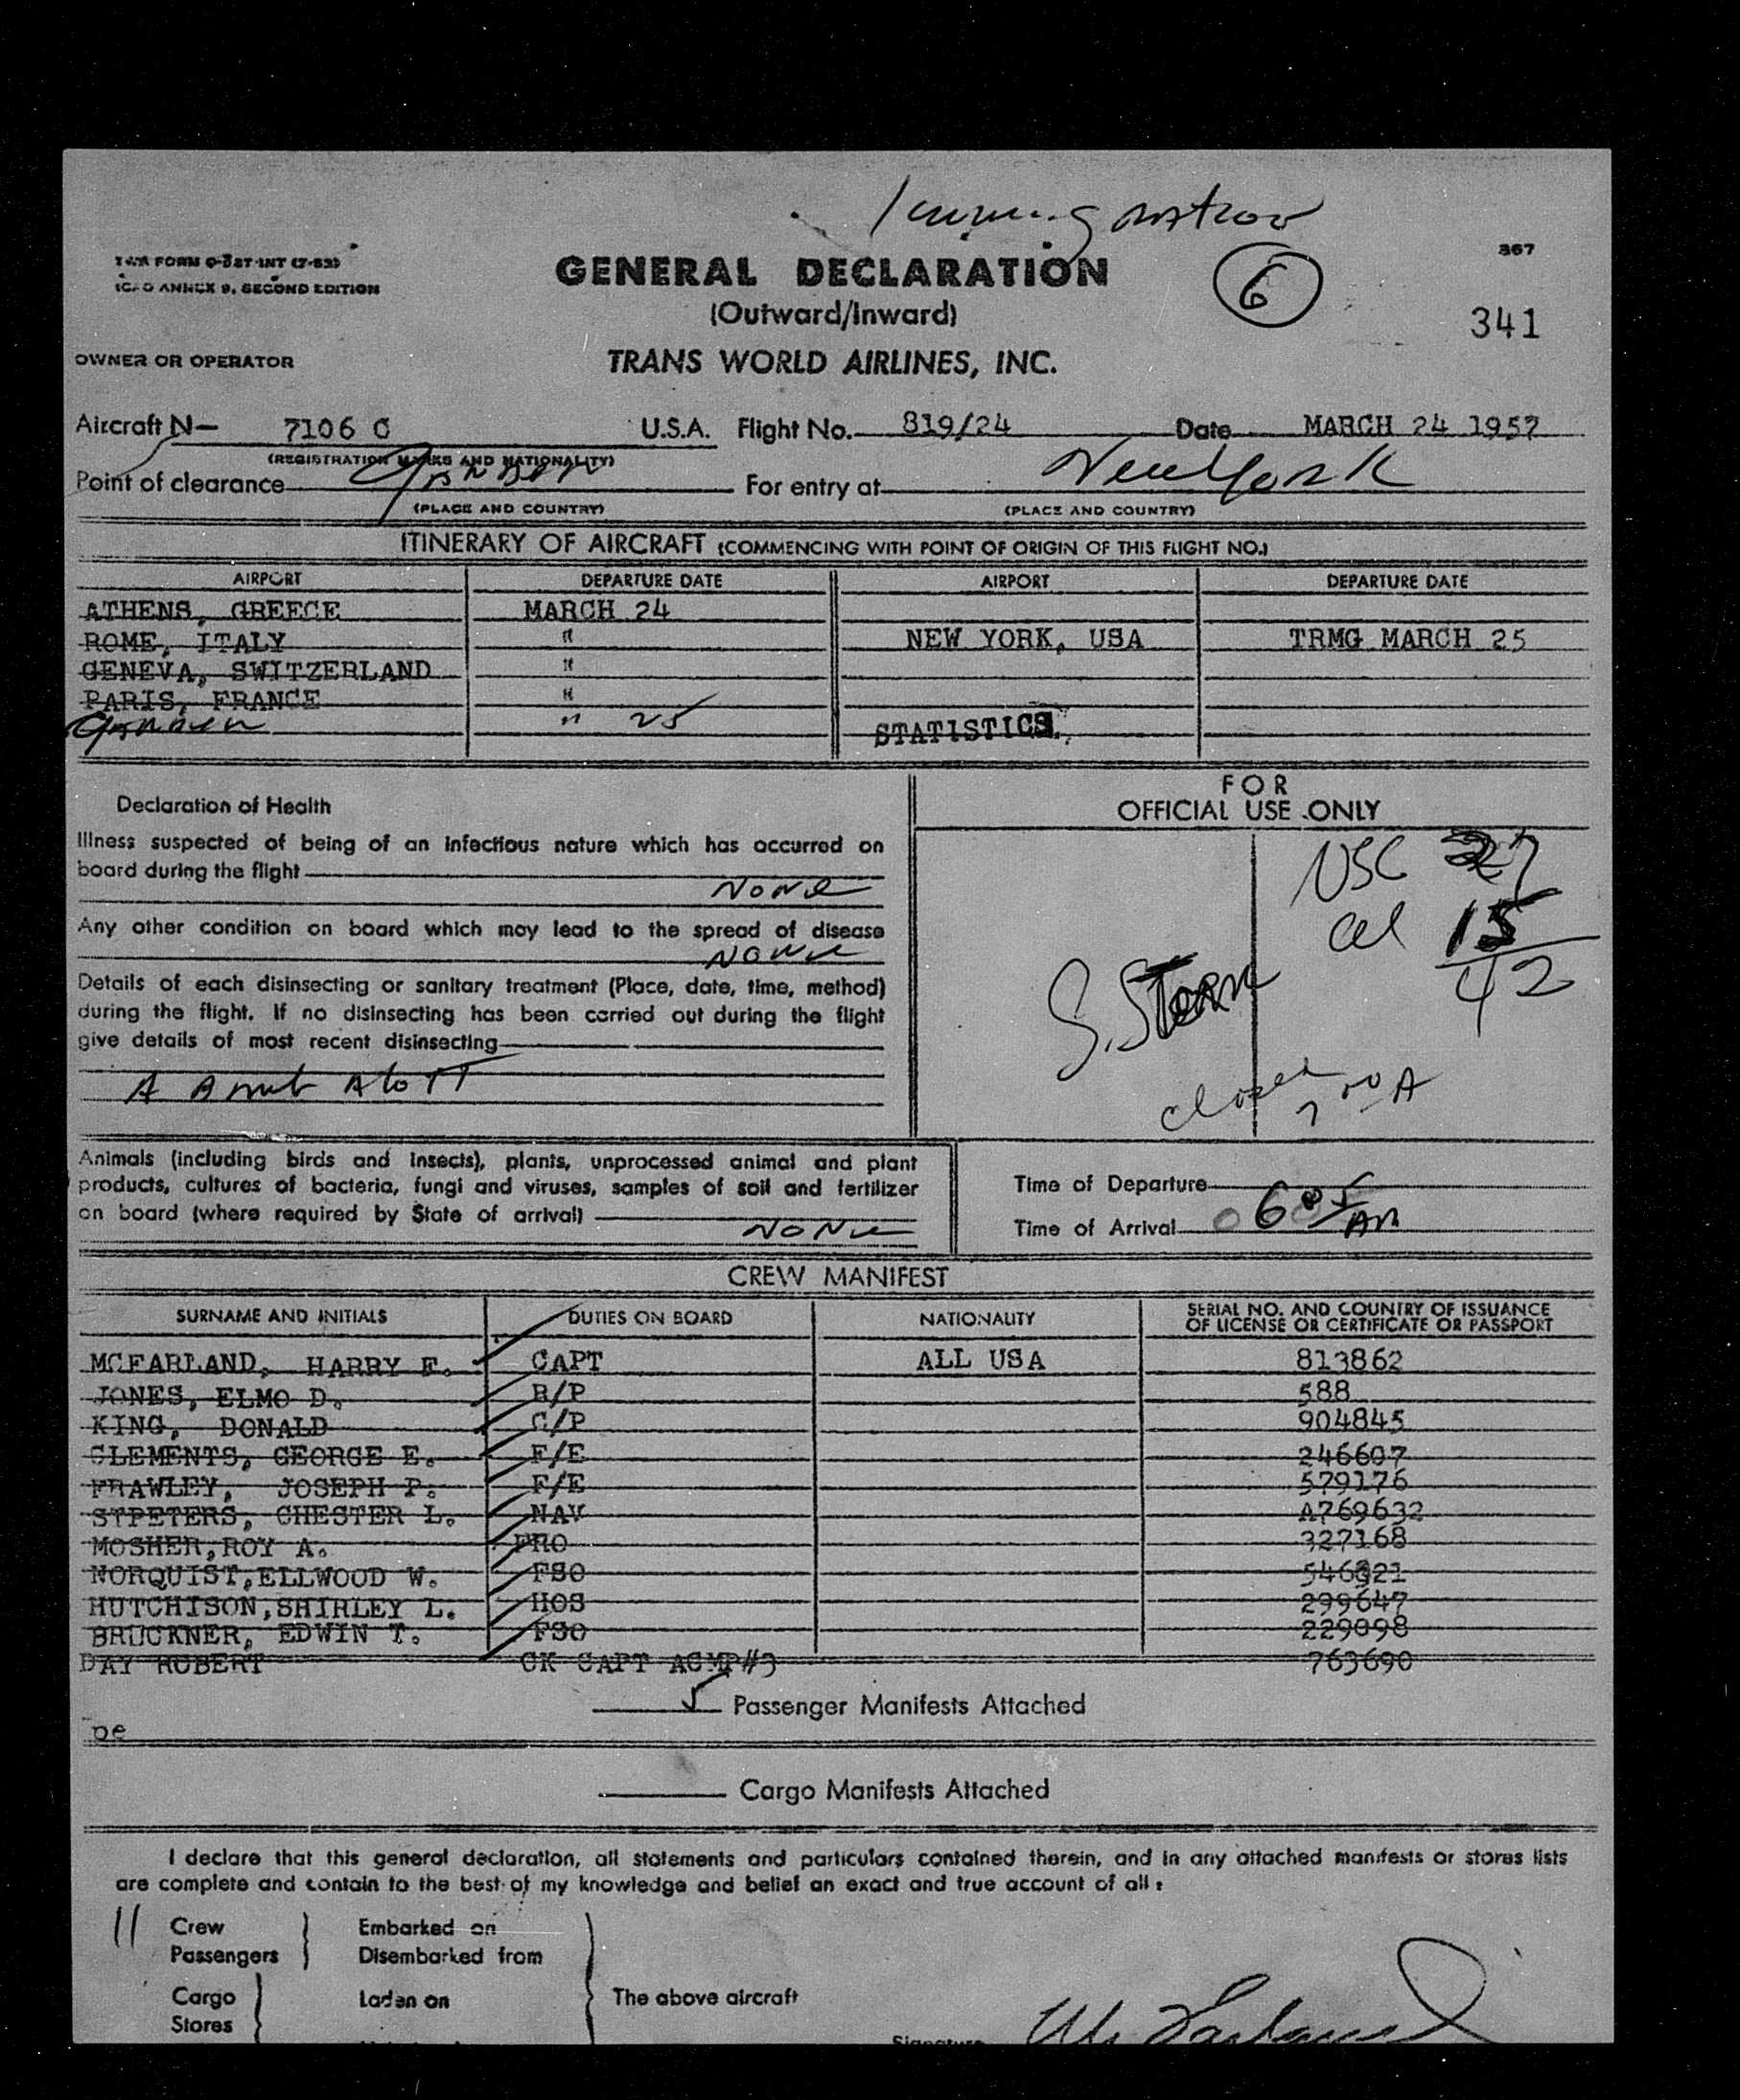 Immigration
TWA FORM O-387-INT (7-53)
ICAO ANNEX 9, SECOND EDITION
GENERAL DECLARATION
(Outward/Inward)
6
367
341
OWNER OR OPERATOR
TRANS WORLD AIRLINES, INC.
Aircraft N— 7106 C U.S.A. Flight No. 819/24 Date MARCH 24 1957
(REGISTRATION MARKS AND NATIONALITY)
Point of clearance Gander For entry at New York
(PLACE AND COUNTRY) (PLACE AND COUNTRY)
ITINERARY OF AIRCRAFT (COMMENCING WITH POINT OF ORIGIN OF THIS FLIGHT NO.)
AIRPORT DEPARTURE DATE AIRPORT DEPARTURE DATE
ATHENS, GREECE MARCH 24
ROME, ITALY " NEW YORK, USA TRMG MARCH 25
GENEVA, SWITZERLAND "
PARIS, FRANCE "
Gander " 25 STATISTICS
FOR
OFFICIAL USE ONLY
Declaration of Health
Illness suspected of being of an infectious nature which has occurred on
board during the flight
None
Any other condition on board which may lead to the spread of disease
None
Details of each disinsecting or sanitary treatment (Place, date, time, method)
during the flight. If no disinsecting has been carried out during the flight
give details of most recent disinsecting
USC 27
al 15
42
S. Stern
closed 7 00 A
Animals (including birds and insects), plants, unprocessed animal and plant
products, cultures of bacteria, fungi and viruses, samples of soil and fertilizer
on board (where required by State of arrival)
None
Time of Departure
Time of Arrival 6 05 AM
CREW MANIFEST
SURNAME AND INITIALS DUTIES ON BOARD NATIONALITY SERIAL NO. AND COUNTRY OF ISSUANCE
OF LICENSE OR CERTIFICATE OR PASSPORT
MCFARLAND, HARRY F. CAPT ALL USA 813862
JONES, ELMO D. R/P 588
KING, DONALD C/P 904845
CLEMENTS, GEORGE E. F/E 246607
FRAWLEY, JOSEPH P. F/E 579176
STPETERS, CHESTER L. NAV A769632
MOSHER, ROY A. PRO 327168
NORQUIST, ELLWOOD W. FSO 546321
HUTCHISON, SHIRLEY L. HOS 299647
BRUCKNER, EDWIN T. FSO 229098
DAY ROBERT CK CAPT ACMP#3 763690
Passenger Manifests Attached
pe
Cargo Manifests Attached
I declare that this general declaration, all statements and particulars contained therein, and in any attached manifests or stores lists
are complete and contain to the best of my knowledge and belief an exact and true account of all:
11 Crew Embarked on
Passengers Disembarked from
Cargo Laden on The above aircraft
Stores
Signature McFarland